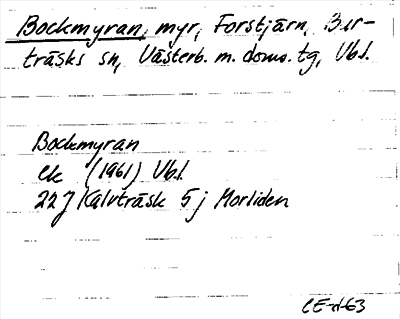 Bockmyran, myr, Forstjärn, Bur-
träsks sn, Västerb. m. doms. tg, Vbl.
Bockmyran
ek (1961) Vbl.
22J Kalvträsk 5 j Morliden
CE-d-63